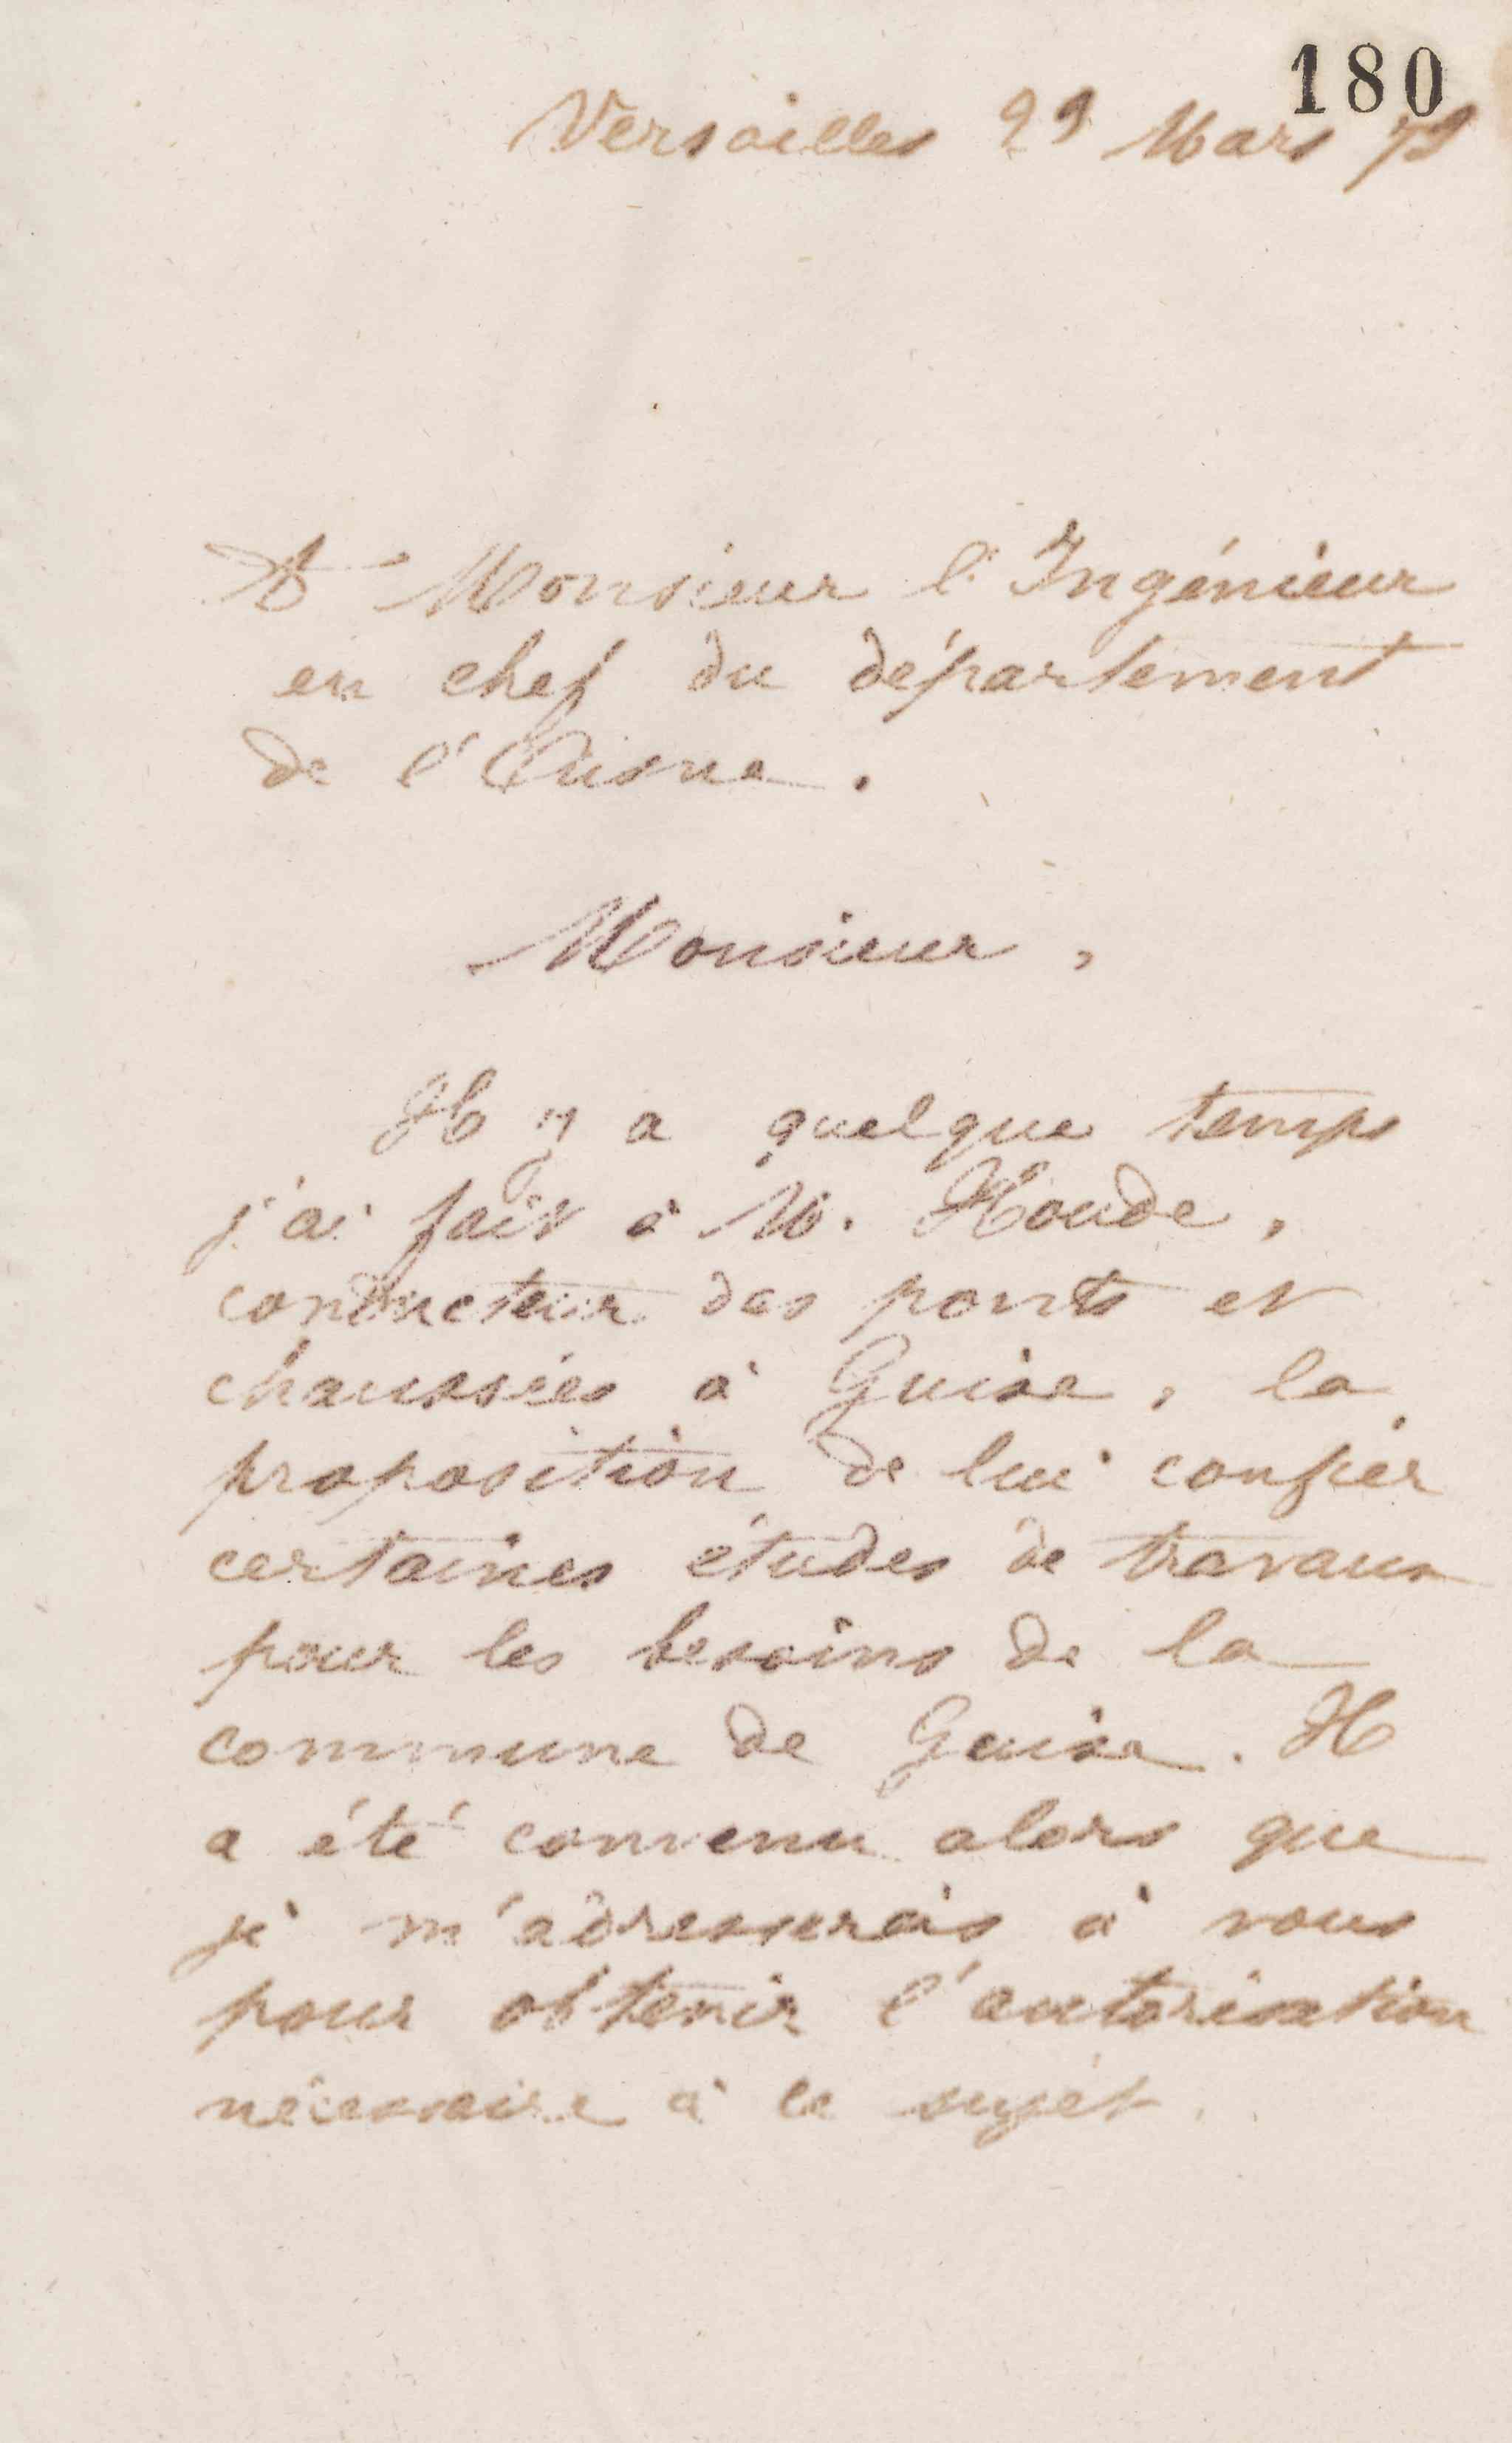 180
Versailles 29 Mars 73
A Monsieur l'Ingénieur
en chef du département
de l'Aisne.
Monsieur,
Il y a quelque temps
j'ai fait à M. Houde,
conducteur des ponts et
chaussées à Guise, la
proposition de lui confier
certaines études de travaux
pour les besoins de la
commune de Guise. Il
a été convenu alors que
je m'adresserais à vous
pour obtenir l'autorisation
nécessaire à ce sujet.